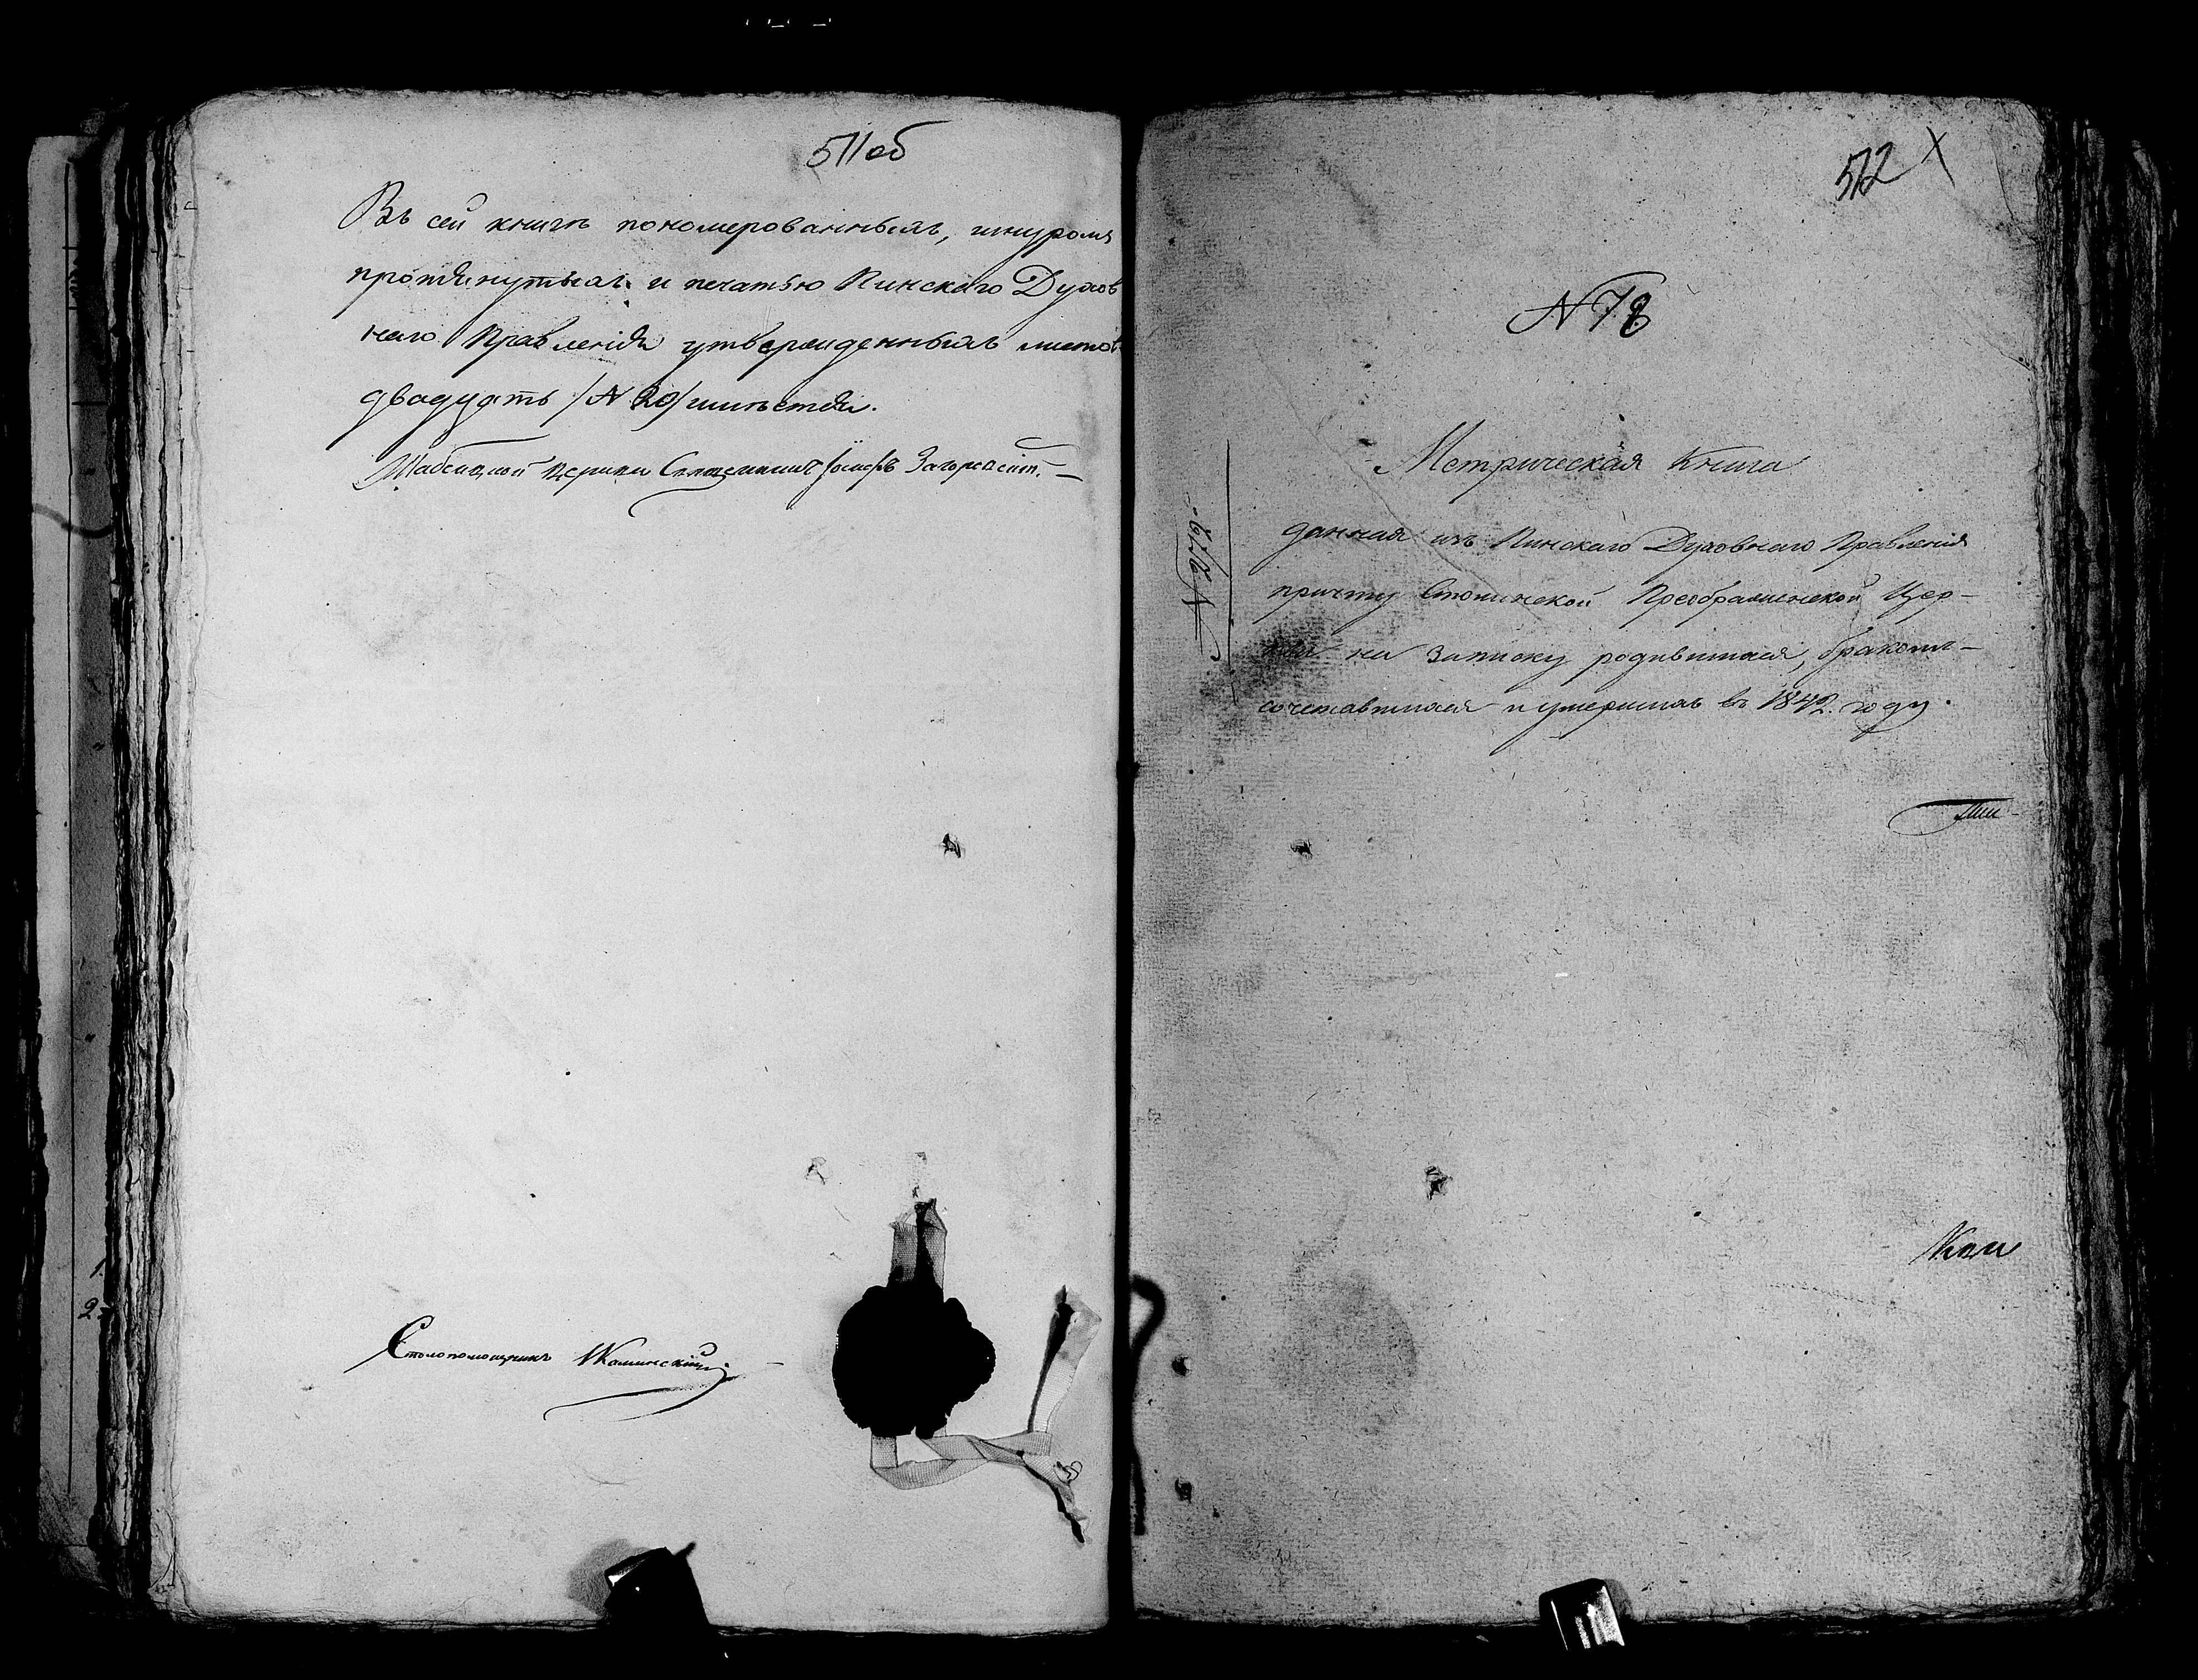 511 об
Въ сей книгѣ пономерованныхъ, шнуромъ
протянутыхъ и печатью Пинскаго Духов
наго Правленія утвержденныхъ листовъ
двадцать /N 20/
церкви Священникъ Іосифъ
Столопомощникъ Каминскій
512 X
N 78
Метрическая Книга
данная изъ Пинскаго Духовнаго Правленія
причту Столинской Преображенской Цер-
кви на записку родившихся, бракомъ-
сочетавшихся и умершихъ въ 1842. году.
Ками